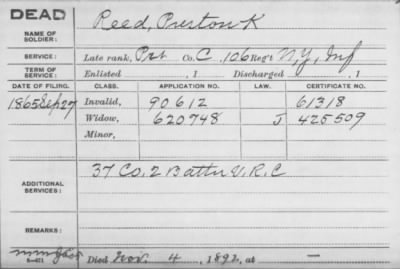 DEAD
NAME OF SOLDIER: Reed, Preston K
SERVICE: Late rank, Pvt Co. C, 106 Reg't N.Y. Inf
TERM OF SERVICE: Enlisted , 1 Discharged , 1
DATE OF FILING. CLASS. APPLICATION NO. LAW. CERTIFICATE NO.
1865 Sep 27 Invalid, 90612 61318
Widow, 620748 J 425509
Minor,
ADDITIONAL SERVICES: 37 Co. 2 Battn V.R.C
REMARKS:
Died Nov. 4, 1892, at —